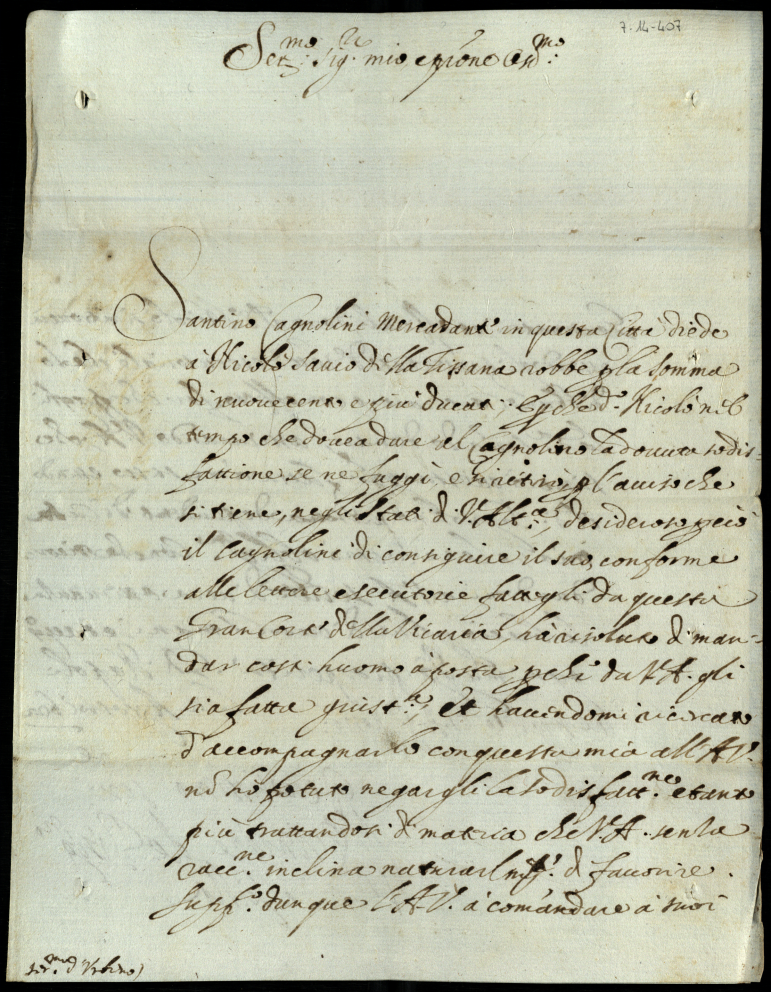 7-14-407
Ser.mo Sig.r mio e p̄rone Oss.mo
Santino Cagnolini Mercadante in questa Città diede
à Nicolò Savio della Tissana robbe p̲ la somma
di novecento e più ducati, e p̲che d.o Nicolò nel
tempo che dovea dare al Cagnolino la dovuta sodis-
fattione se ne fuggì, e si ritirò p̲ l'aviso che
si tiene, negli Stati di V. Alt.a, desideroso p̲ciò
il Cagnolini di conseguire il suo, conforme
alle lettere esecutorie fattegli da questa
Gran Corte della Vicaria, hà risoluto di man-
dar costi huomo à posta, p̲che da V.A. gli
sia fatta giust.a, et havendomi ricercato
d'accompagnarlo con questa mia all'A.V.
nō ho potuto negargli la sodisfatt.ne, e tanto
più trattandosi di materia che V.A. senza
racc.ne inclina naturalm.te di favorire.
Supp.co dunque l'A.V. à comandare a' suoi
Ser.mo d'Urbino)